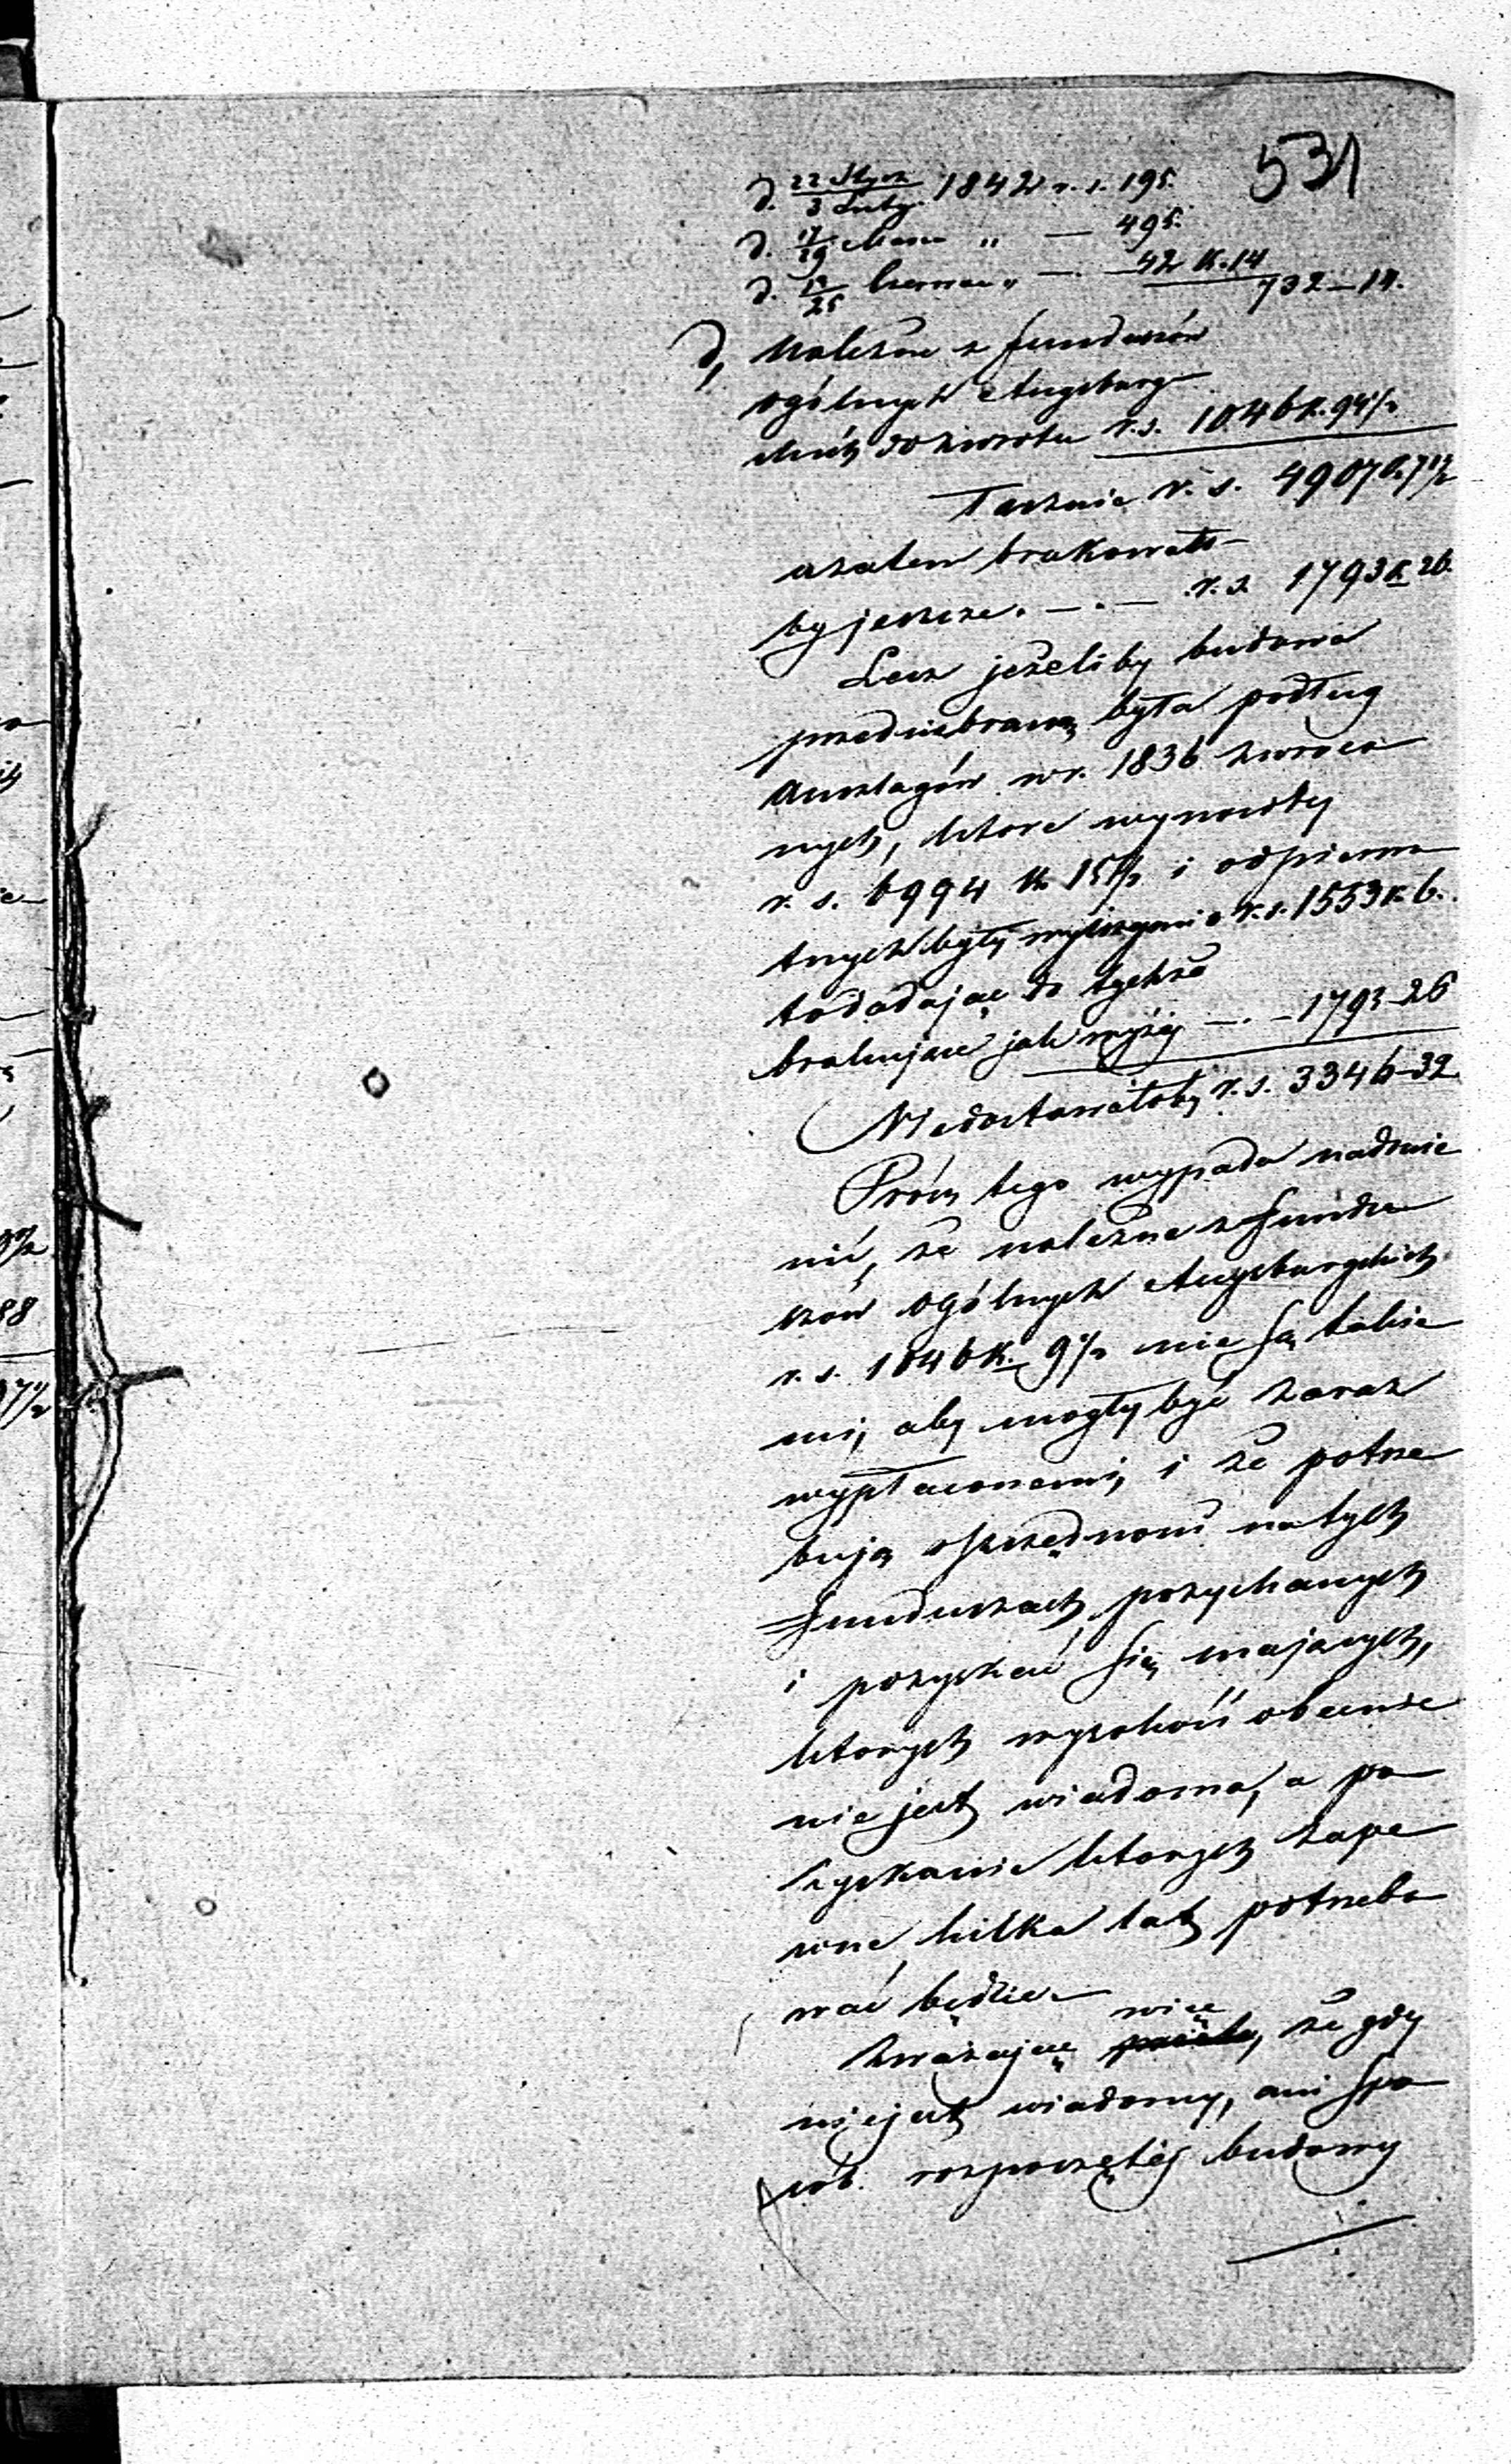 531
d. 22 Stycz / 3 Luty. 1842 r. s. 195.
d. 17/29 Marca „ — 495.
d. 13/25 Czerwca „ —. — 42 K. 14
732 — 14.
d, Należne z funduszów
ogólnych Augsburg-
skich do zwrotu r. s. 1046 k. 9 1/2
Łącznie r. s. 4907 k. 7 1/2
a zatem brakowało-
by jeszcze. —.— r. s. 1793 K 26.
Lecz jeżeliby budowa
przedsiebraną była podług
Anszlagów w r. 1836 zwróco
nych, które wynosiły
r. s. 6994 K 15 1/2 i od pierwo
tnych były wyższymi o r. s. 1553 K. 6.
to dodając do tychże
brakujące jak wyżéj —. — 1793 — 26
Niedostawałoby r. s. 3346 — 32
Prócz tego wypada nadmie
nić, że należne z fundu
szów ogólnych Augsburgskich
r. s. 1046 K. 9 1/2 nie są takie
mi, aby mogły być zaraz
wypłaconemi, i że potrze
bują oszczędności na tych
funduszach pozyskanych
i pozyskać się mających,
których wysokość obecnie
nie jest wiadoma, a po
zyskanie których zape
wne kilka lat potrzebo
wać będzie.—
Zważając więc, że gdy
nie jest wiadomy, ani spo
sób rozpoczętéj budowy